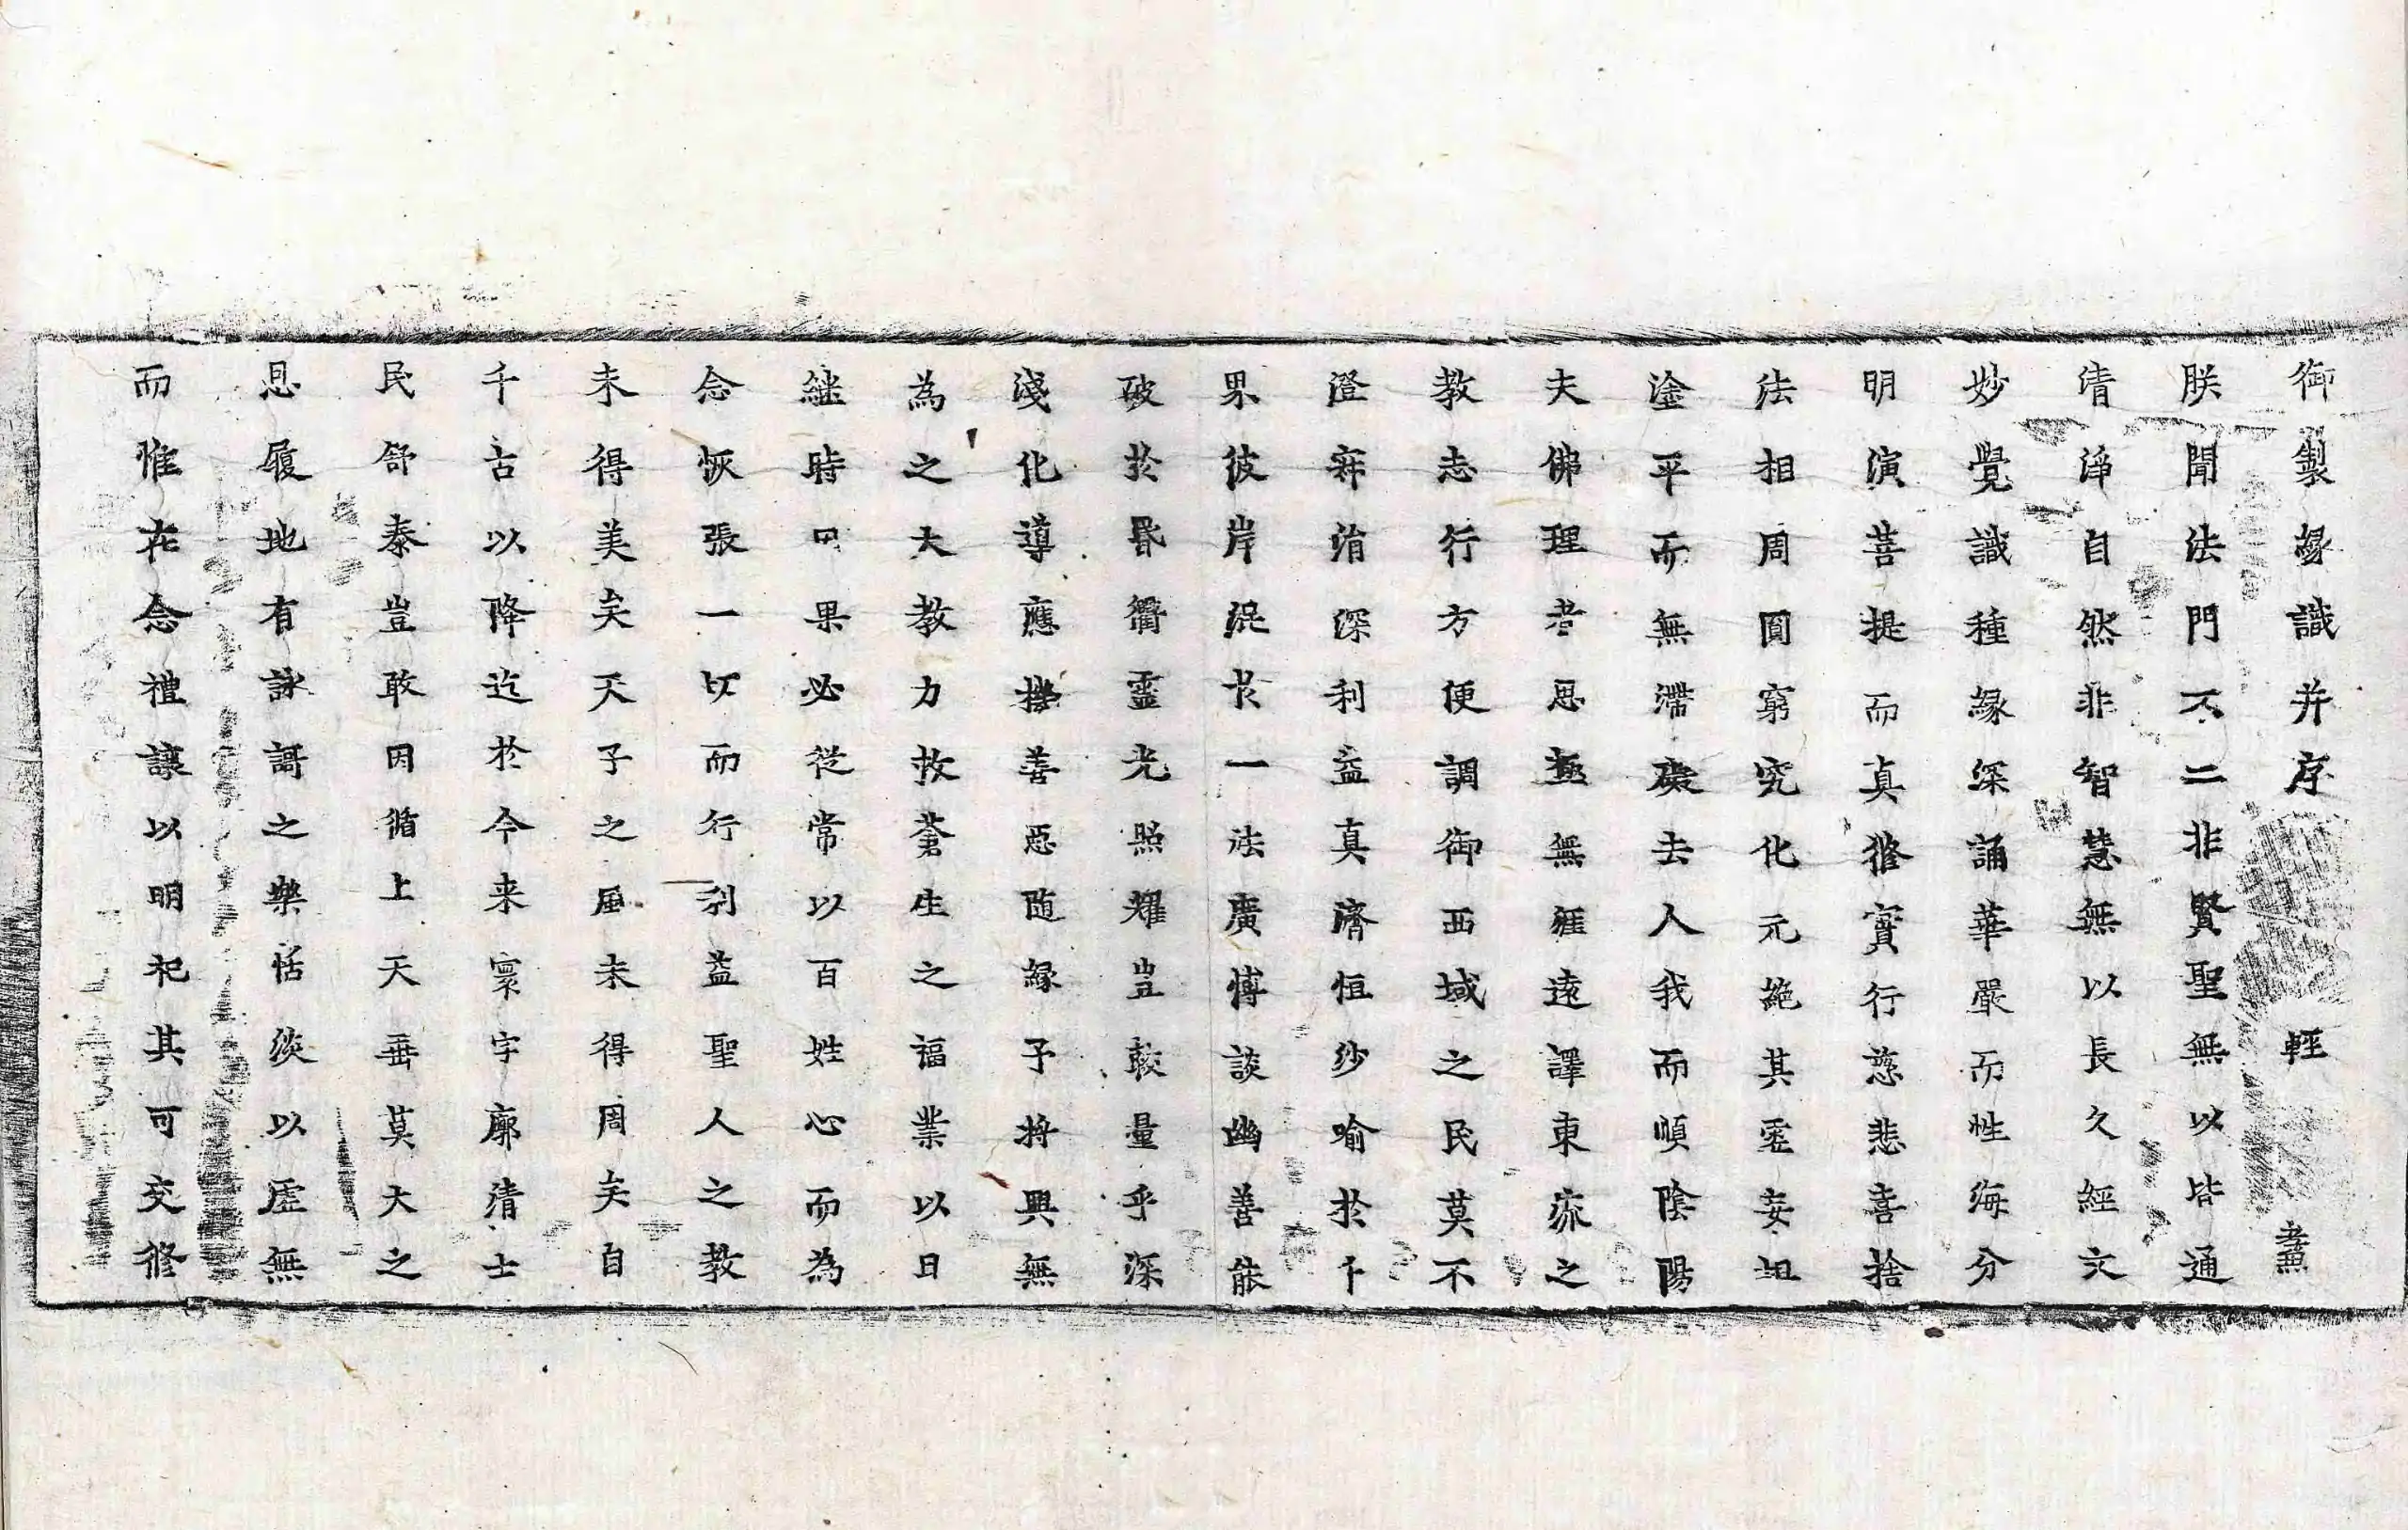 御製緣識并序 輕
朕聞法門不二非賢聖無以皆通
清淨自然非智慧無以長久經文
妙覺識種緣深誦華嚴而性海分
明演菩提而真修實行慈悲喜捨
法相周圓窮究化元絶其虛妄坦
塗平而無滯礙去人我而順陰陽
夫佛理者思極無涯遠譯東流之
教志行方便調御西域之民莫不
澄寂淯深利益真濟恒沙喻於千
界彼岸混長一法廣博談幽善能
破於昏衢靈光照耀豈敢量乎深
淺化導應機善惡随緣予将興無
為之大教力救蒼生之福業以日
繼時因果必從常以百姓心而為
念恢張一切而行利益聖人之教
未得美矣天子之風未得周矣自
千古以降迄於今来寰宇廓清士
民舒泰豈敢因循上天垂莫大之
恩履地有詠謌之樂恬淡以虛無
而惟在念禮讓以明祀其可交修